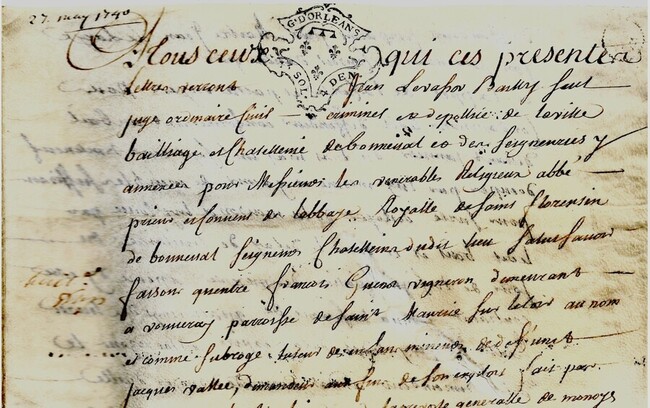 27. may 1740
G. D'ORLEANS
SOL DEN
A Tous ceux qui ces presentes
Lettres verront Jean Levassor Bailly seul
juge ordinaire Civil criminel et de police de la ville
bailliage et Chastellenie de bonneval et des Seigneuries y
annexées pour Messieurs les venerables Religieux abbé
prieur et couvent de labbaye Royalle de saint florentin
de bonneval Seigneurs Chastellains dudit lieu Salut savoir
faisons quentre françois vigneron demeurant
a vouvray parroisse de saint Maurice sur le loir au nom
et comme subrogé tuteur des enfans mineurs de defunt
Jacques vallée, demandeur aux fins de son exploit fait par
generalle de monoys